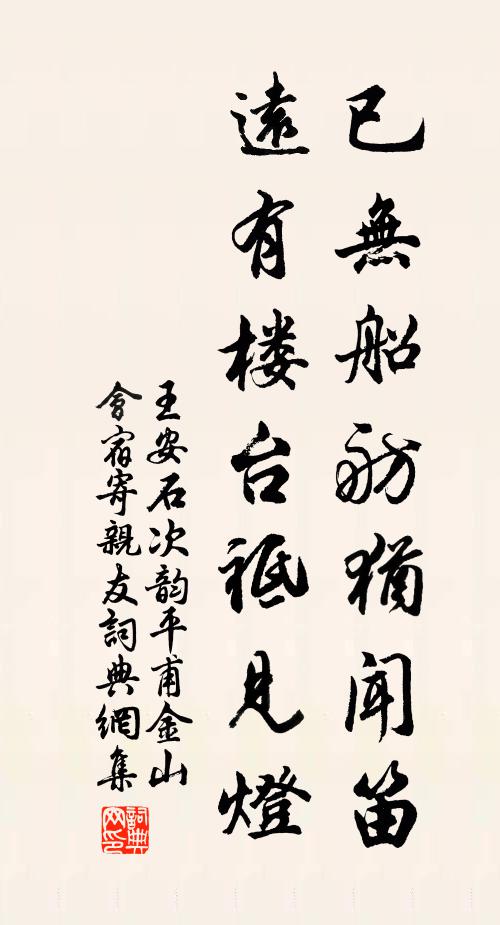 已無船舫猶聞笛
遠有楼台祗見燈
王安石次韵平甫金山
會宿寄親友詞典網集
詞典
网印